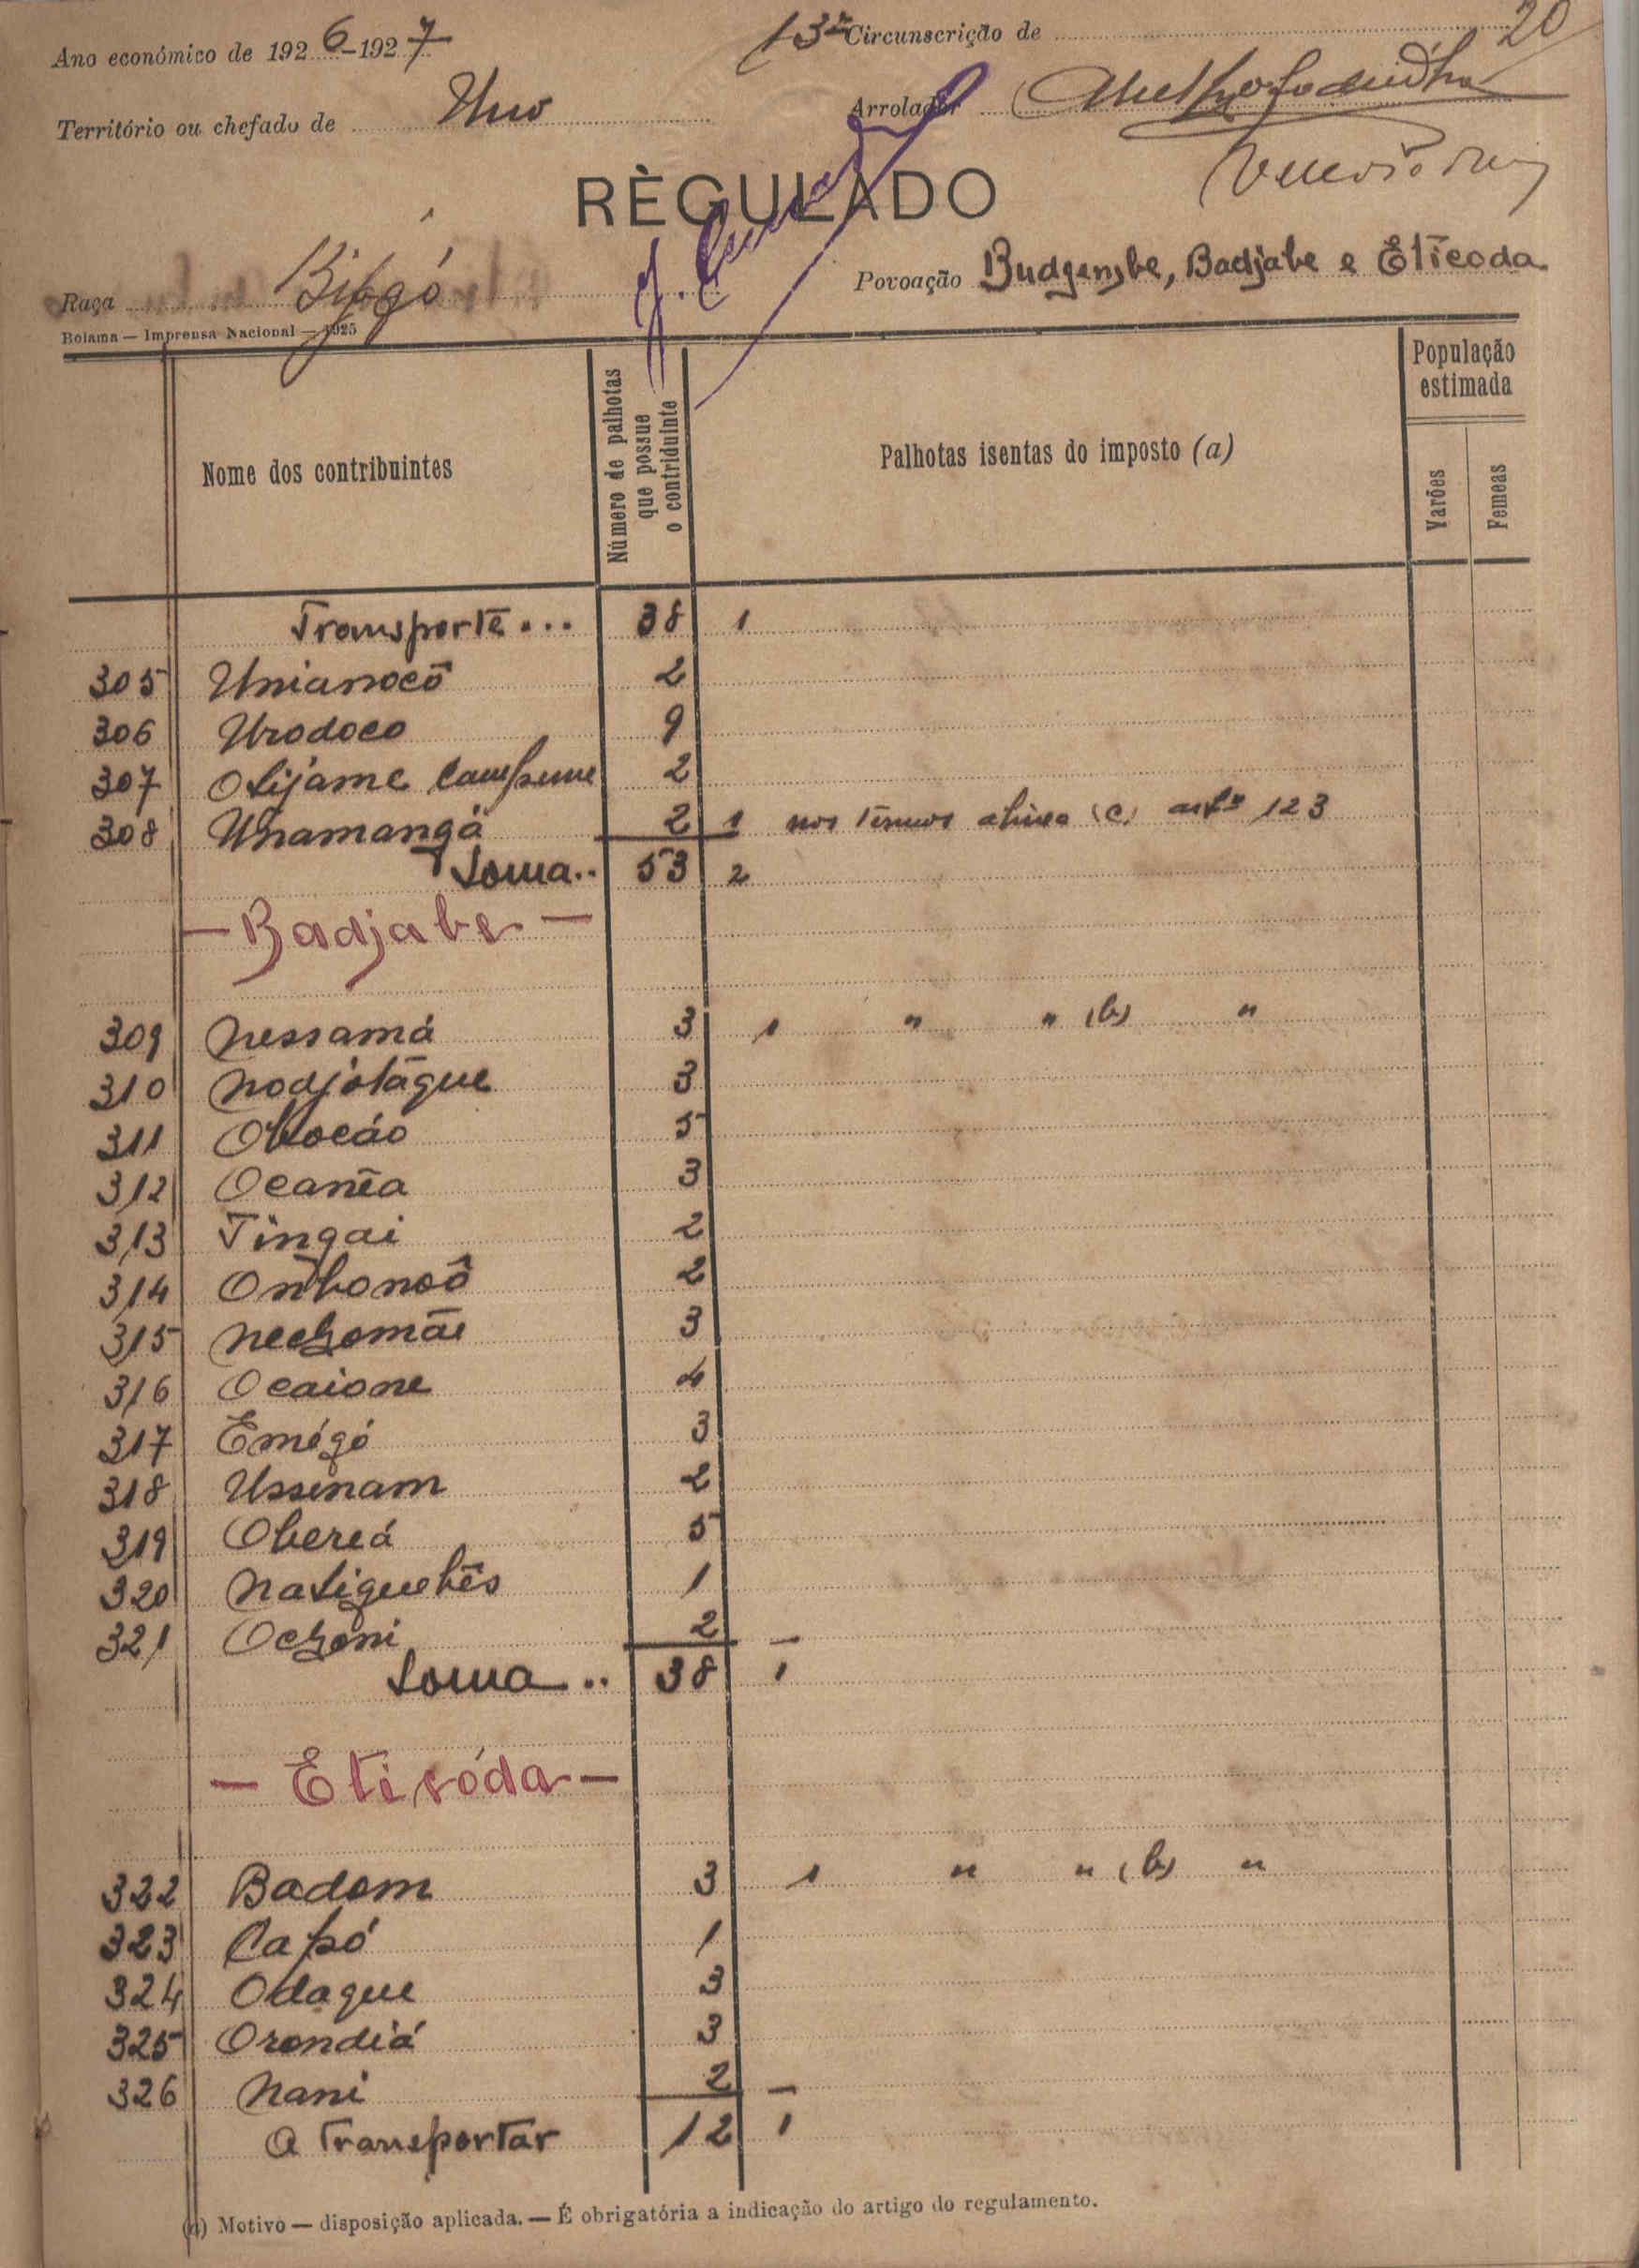 20
Ano económico de 1926-1927
13ª Circunscrição de
Território ou chefado de Uno
Arrolador
RÈGULADO
Raça Bijagó
Povoação Budjembe, Badjabe e Eticoda
Bolama — Imprensa Nacional — 1925
Nome dos contribuintes
Número de palhotas que possue o contriduinte
Palhotas isentas do imposto (a)
População estimada
Varões
Femeas
Transporte... 38 1
305 Unianocô 2
306 Urodoco 9
307 Otijame Campune 2
308 Unamangá 2 1 nos termos alinea (c) artº 123
Soma.. 53 2
— Badjabe —
309 Nessamá 3 1 " " (b) "
310 Nodjotáque 3
311 Obocáo 5
312 Ocanêa 3
313 Tingai 2
314 Onhonoô 2
315 Nechomãe 3
316 Ocaione 4
317 Emégó 3
318 Ussenam 2
319 Obereá 5
320 Natiguebês 1
321 Ochoni 2 —
Soma.. 38 1
— Eticóda —
322 Badom 3 1 " " (b) "
323 Capó 1
324 Odaque 3
325 Orondiá 3
326 Nani 2 —
A Transportar 12 1
(a) Motivo — disposição aplicada. — É obrigatória a indicação do artigo do regulamento.